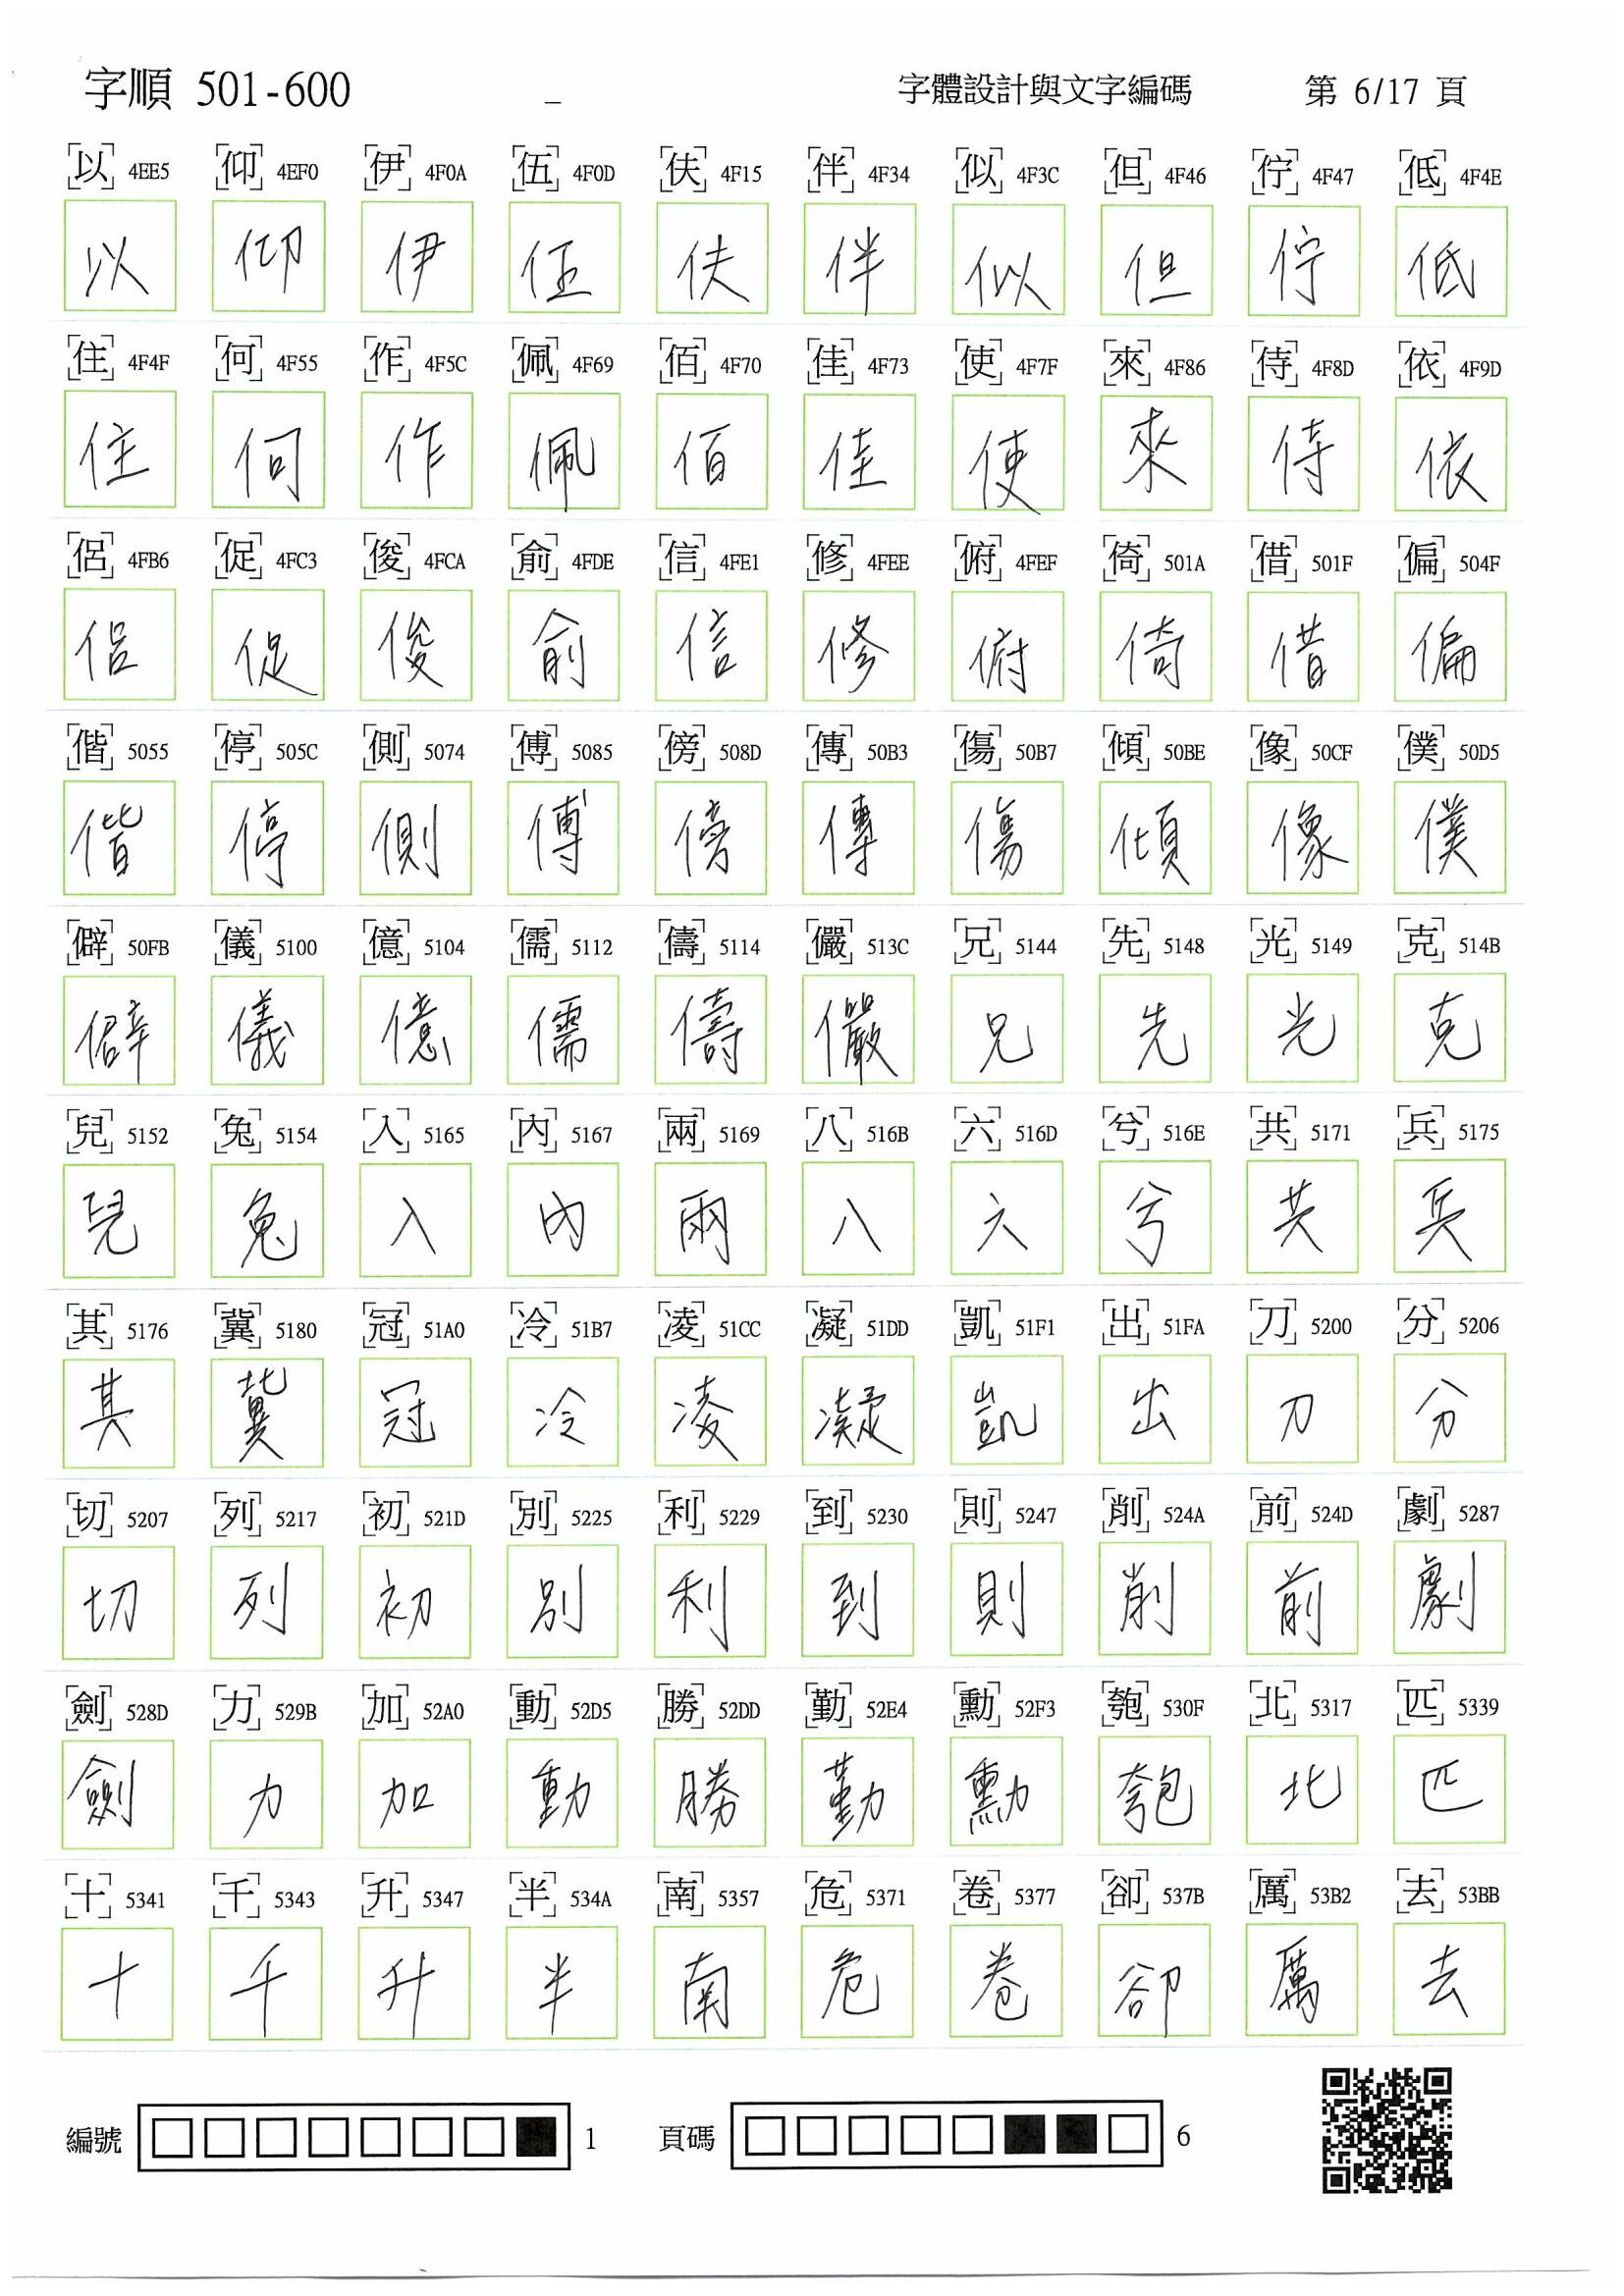 字順 501-600 _ 字體設計與文字編碼 第 6/17 頁
以 4EE5 仰 4EF0 伊 4F0A 伍 4F0D 伕 4F15 伴 4F34 似 4F3C 但 4F46 佇 4F47 低 4F4E
以 仰 伊 伍 伕 伴 似 但 佇 低
住 4F4F 何 4F55 作 4F5C 佩 4F69 佰 4F70 佳 4F73 使 4F7F 來 4F86 侍 4F8D 依 4F9D
住 何 作 佩 佰 佳 使 來 侍 依
侶 4FB6 促 4FC3 俊 4FCA 俞 4FDE 信 4FE1 修 4FEE 俯 4FEF 倚 501A 借 501F 偏 504F
侶 促 俊 俞 信 修 俯 倚 借 偏
偕 5055 停 505C 側 5074 傅 5085 傍 508D 傳 50B3 傷 50B7 傾 50BE 像 50CF 僕 50D5
偕 停 側 傅 傍 傳 傷 傾 像 僕
僻 50FB 儀 5100 億 5104 儒 5112 儔 5114 儼 513C 兄 5144 先 5148 光 5149 克 514B
僻 儀 億 儒 儔 儼 兄 先 光 克
兒 5152 兔 5154 入 5165 內 5167 兩 5169 八 516B 六 516D 兮 516E 共 5171 兵 5175
兒 兔 入 內 兩 八 六 兮 共 兵
其 5176 冀 5180 冠 51A0 冷 51B7 凌 51CC 凝 51DD 凱 51F1 出 51FA 刀 5200 分 5206
其 冀 冠 冷 凌 凝 凱 出 刀 分
切 5207 列 5217 初 521D 別 5225 利 5229 到 5230 則 5247 削 524A 前 524D 劇 5287
切 列 初 別 利 到 則 削 前 劇
劍 528D 力 529B 加 52A0 動 52D5 勝 52DD 勤 52E4 勳 52F3 匏 530F 北 5317 匹 5339
劍 力 加 動 勝 勤 勳 匏 北 匹
十 5341 千 5343 升 5347 半 534A 南 5357 危 5371 卷 5377 卻 537B 厲 53B2 去 53BB
十 千 升 半 南 危 卷 卻 厲 去
編號 1 頁碼 6